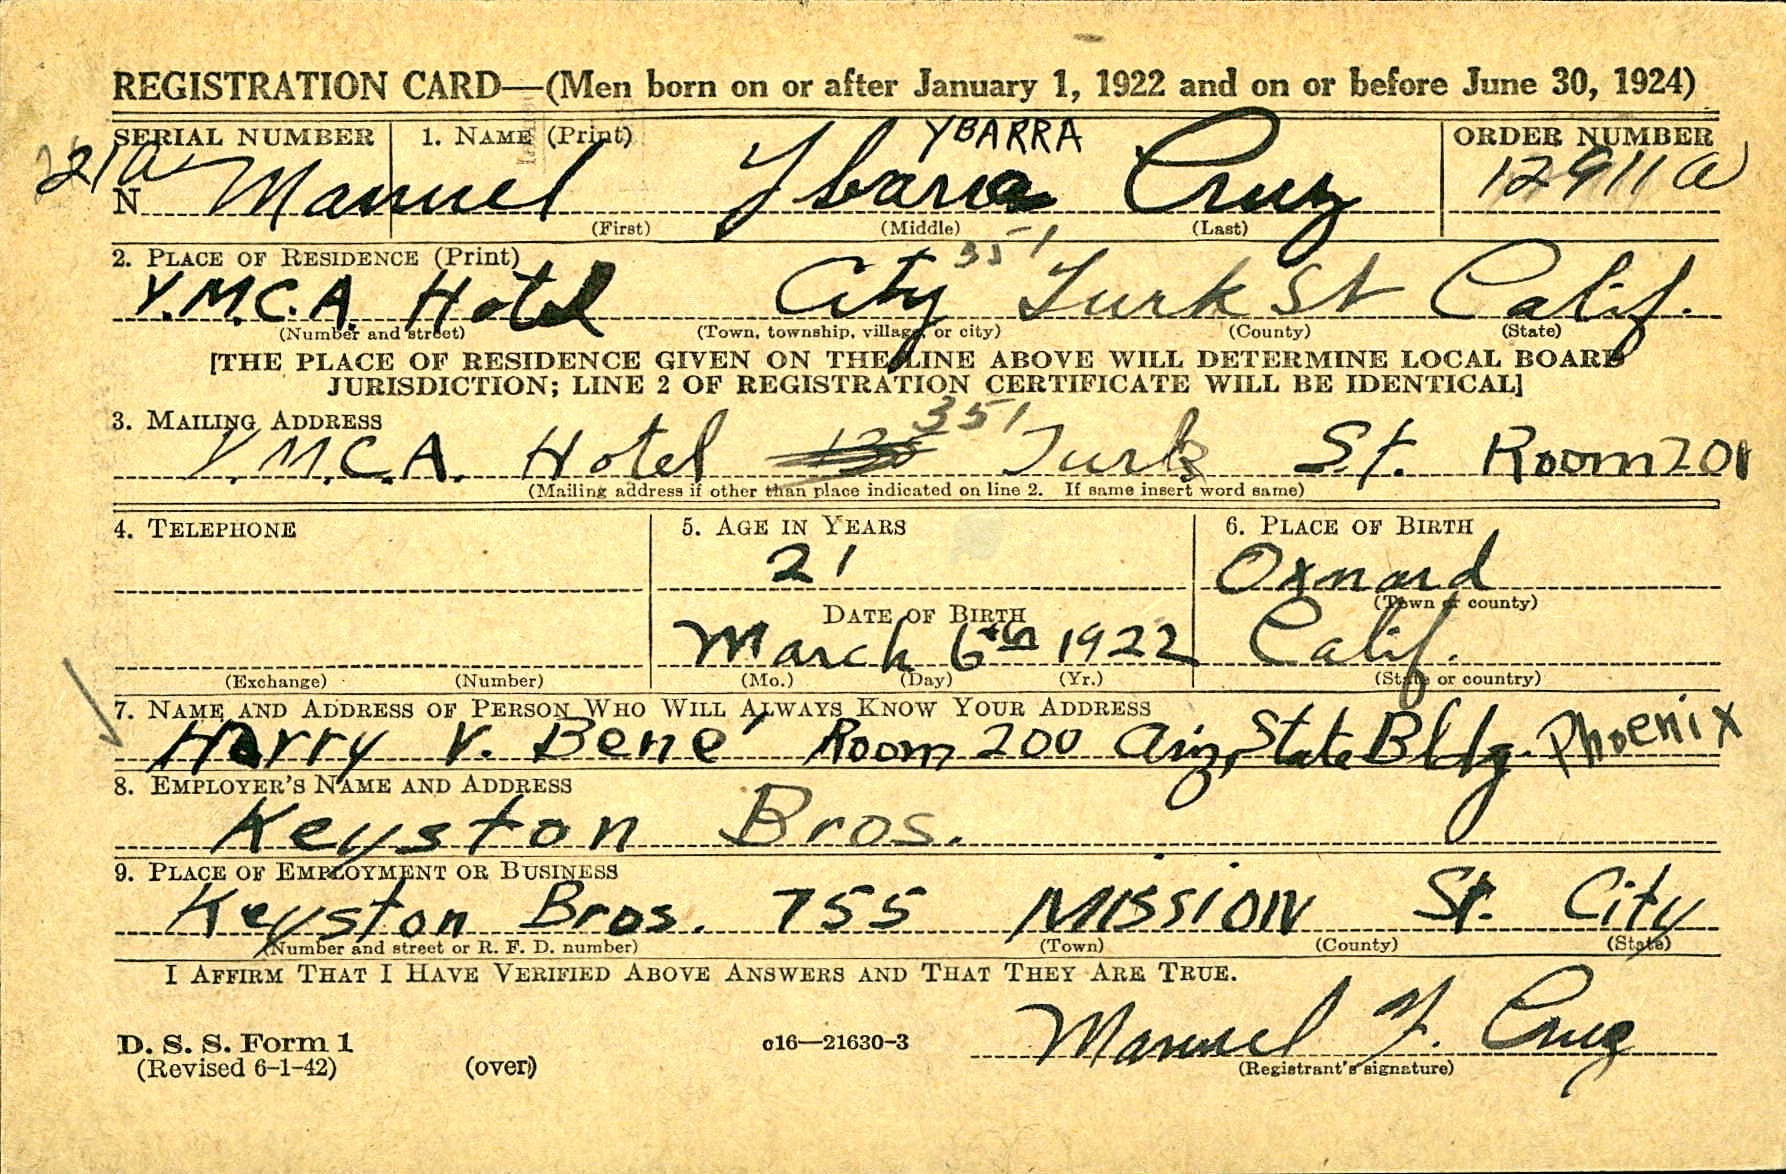 REGISTRATION CARD—(Men born on or after January 1, 1922 and on or before June 30, 1924)
SERIAL NUMBER 1. NAME (Print) YBARRA ORDER NUMBER
21a
N Manuel Ybarra Cruz 12911a
(First) (Middle) (Last)
2. PLACE OF RESIDENCE (Print) 351
Y.M.C.A. Hotel City Turk St Calif.
(Number and street) (Town, township, village, or city) (County) (State)
[THE PLACE OF RESIDENCE GIVEN ON THE LINE ABOVE WILL DETERMINE LOCAL BOARD
JURISDICTION; LINE 2 OF REGISTRATION CERTIFICATE WILL BE IDENTICAL]
3. MAILING ADDRESS 351
Y.M.C.A. Hotel Turk St. Room 201
(Mailing address if other than place indicated on line 2. If same insert word same)
4. TELEPHONE 5. AGE IN YEARS 6. PLACE OF BIRTH
21 Oxnard
(Town or county)
DATE OF BIRTH
March 6th 1922 Calif.
(Exchange) (Number) (Mo.) (Day) (Yr.) (State or country)
7. NAME AND ADDRESS OF PERSON WHO WILL ALWAYS KNOW YOUR ADDRESS
Harry V. Bene' Room 200 Ariz. State Bldg. Phoenix
8. EMPLOYER'S NAME AND ADDRESS
Keyston Bros.
9. PLACE OF EMPLOYMENT OR BUSINESS
Keyston Bros. 755 MISSION St. City
(Number and street or R. F. D. number) (Town) (County) (State)
I AFFIRM THAT I HAVE VERIFIED ABOVE ANSWERS AND THAT THEY ARE TRUE.
Manuel Y. Cruz
D. S. S. Form 1 c16—21630-3
(Revised 6-1-42) (over) (Registrant's signature)